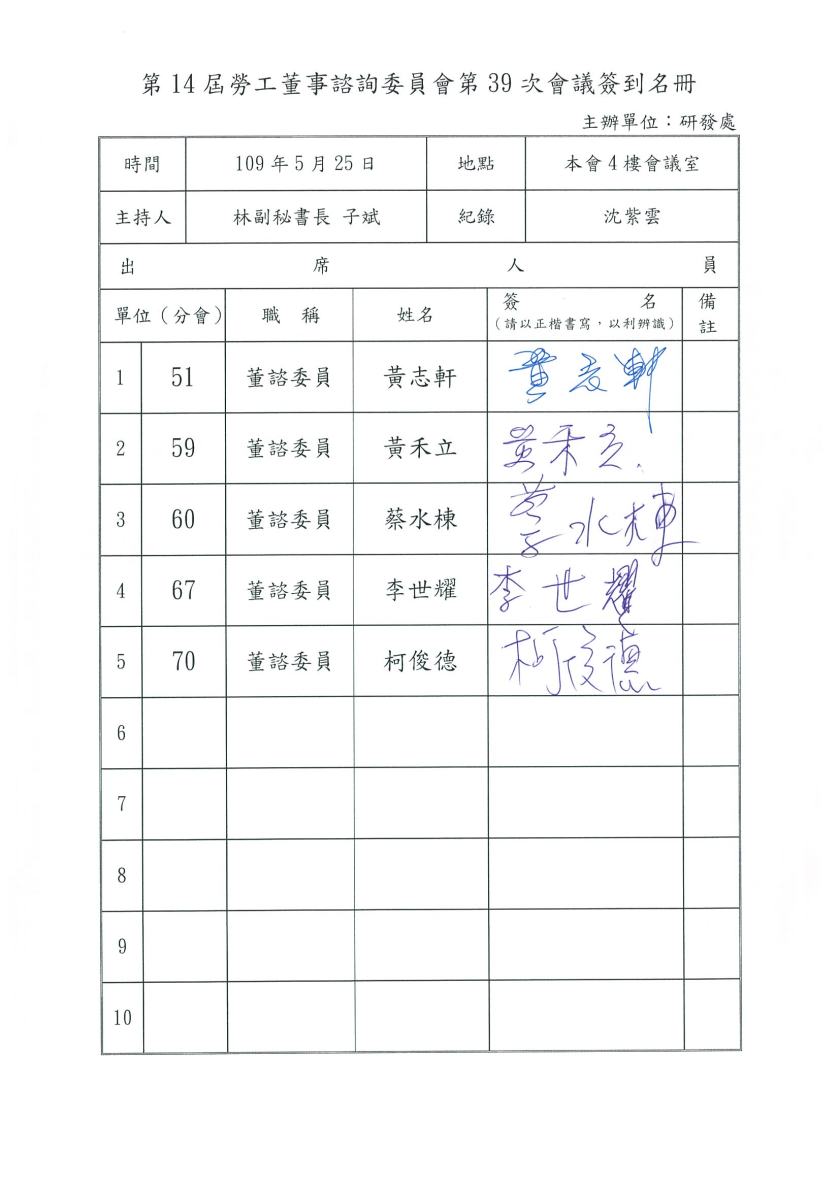 第14屆勞工董事諮詢委員會第39次會議簽到名冊
主辦單位：研發處
時間 109年5月25日 地點 本會4樓會議室
主持人 林副秘書長 子斌 紀錄 沈紫雲
出 席 人 員
單位（分會） 職稱 姓名 簽 名 備註
（請以正楷書寫，以利辨識）
1 51 董諮委員 黃志軒 黃志軒
2 59 董諮委員 黃禾立 黃禾立
3 60 董諮委員 蔡水棟 蔡水棟
4 67 董諮委員 李世耀 李世耀
5 70 董諮委員 柯俊德 柯俊德
6
7
8
9
10